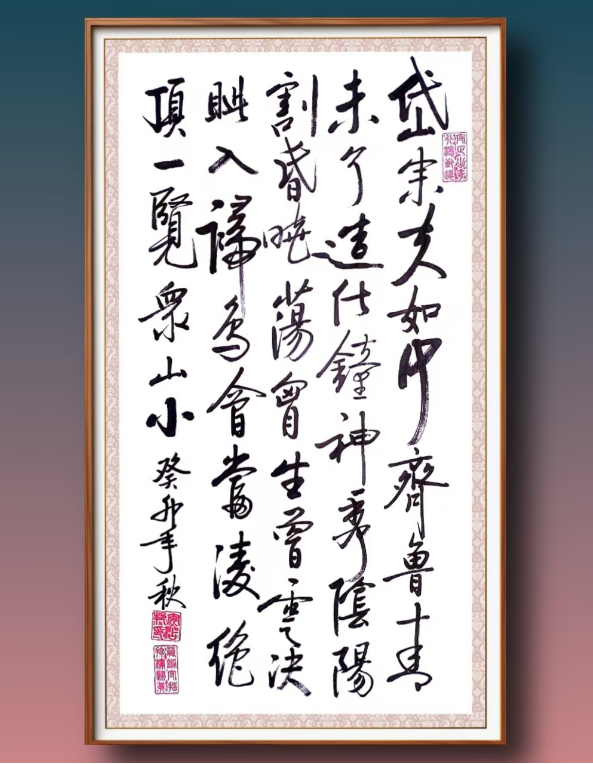 岱宗夫如何齊魯青
未了造化鐘神秀陰陽
割昏曉蕩胷生曾雲决
眦入歸鳥會當淩絶
頂一覽衆山小癸卯年秋